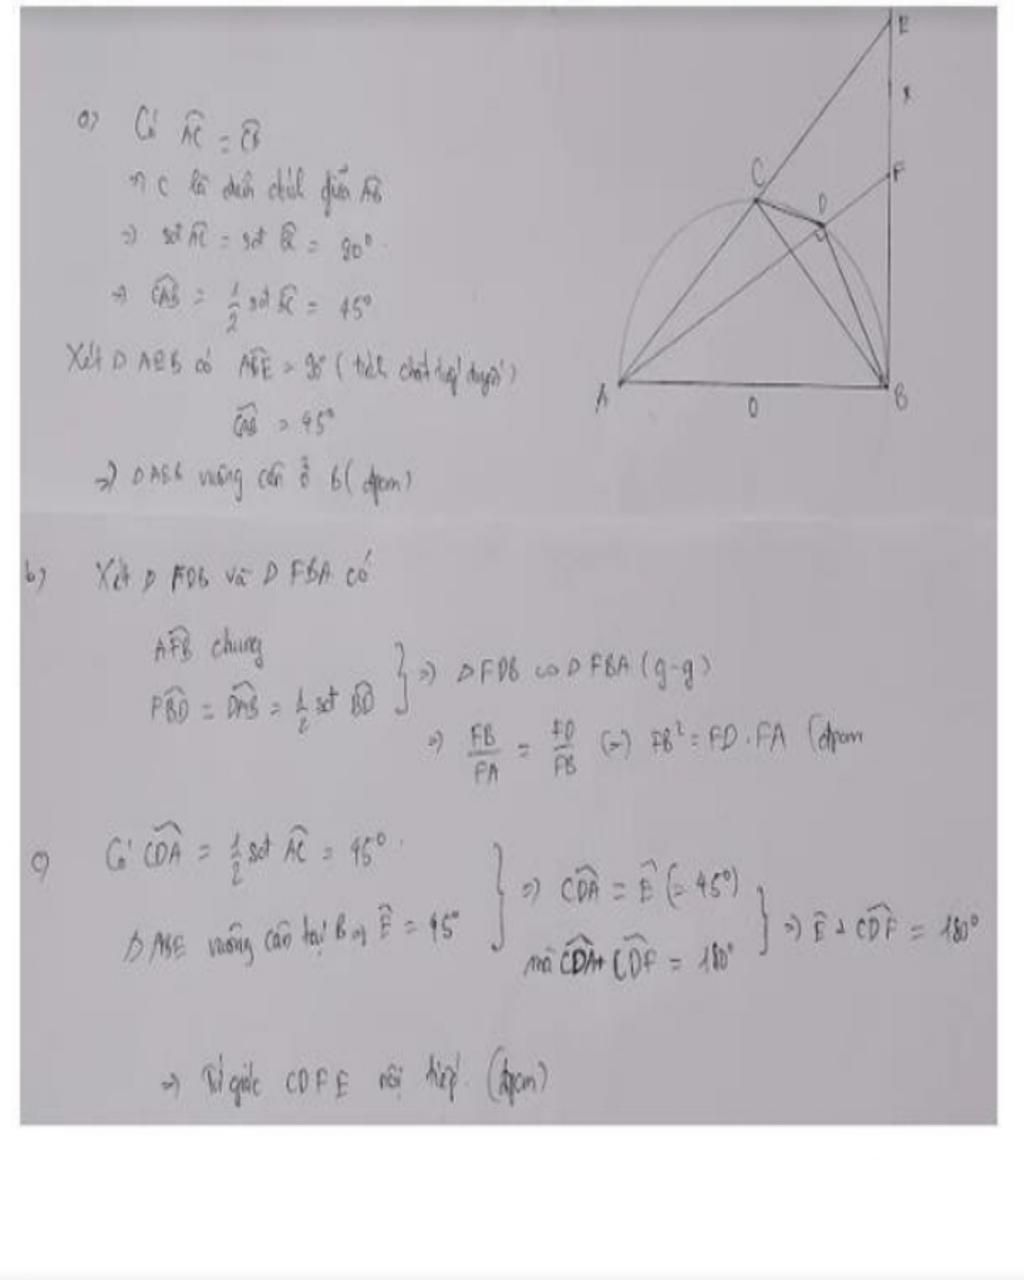 a) Có AC = CB
=> C là điểm chính giữa AB
=> sđ AC = sđ BC = 90°
=> CAB = 1/2 sđ BC = 45°
Xét Δ AEB có ABE = 90° (tính chất tiếp tuyến)
CAB = 45°
=> Δ AEB vuông cân ở B (đpcm)
b) Xét Δ FDB và Δ FBA có
AFB chung
FBD = DAB = 1/2 sđ BD } => Δ FDB ∽ Δ FBA (g-g)
=> FB/FA = FD/FB (=) FB² = FD . FA (đpcm
c) Có CDA = 1/2 sđ AC = 45°
Δ ABE vuông cân tại B => E = 45° } => CDA = E (= 45°)
mà CDA + CDF = 180° } => E + CDF = 180°
=> Tứ giác CDFE nội tiếp. (đpcm)
E
x
F
C
D
A
O
B